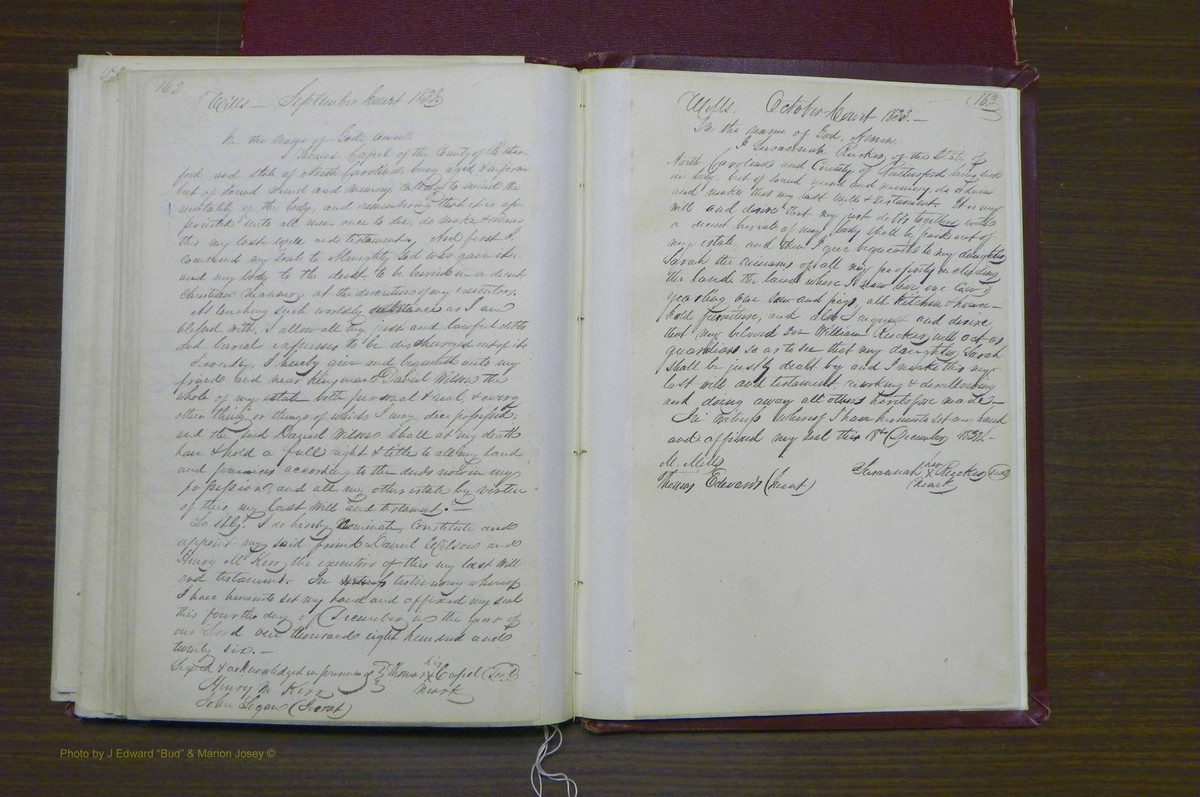 162
Wills — September Court 1833
In the name of God, amen.
I Thomas Capel of the County of Ruther
ford and state of North Carolina being aged & infirm
but of sound mind and memory, calling to mind the
mortality of the body, and remembering that it is ap
pointed unto all men once to die, do make & ordain
this my last will and testament. And first I
commend my soul to Almighty God who gave it
and my body to the dust to be buried in a decent
Christian manner, at the discretion of my executors.
As touching such worldly substance as I am
blessed with, I allow all my just and lawful debts
and burial expenses to be discharged out of it
Secondly, I freely give and bequeath unto my
friend and near kinsman Daniel Wilson the
whole of my estate both personal & real, & every
other thing or things of which I may die possessed,
and the said Daniel Wilson shall at my death
have & hold a full right & title to all my land
and premises according to the deeds now in my
possession, and all my other estate by virtue
of this my last will and testament. —
Lastly. I do hereby nominate, constitute and
appoint my said friend Daniel Wilson and
Henry McKiss the executors of this my last will
and testament. In testimony whereof
I have hereunto set my hand and affixed my seal
this fourth day of December in the year of
our Lord one thousand eight hundred and
twenty six. —
Signed & acknowledged in presence of Thomas his X Capel (Seal)
mark
Henry M. Kiss
John Logan (Jurat)
163
Wills. October Court 1833. —
In the name of God, Amen.
I Susannah Rucker of the State of
North Carolina and County of Rutherford being
but of sound mind and memory, do ordain
and make this my last will & testament. It is my
will and desire that my just debts together with
a decent burial of my body shall be paid out of
my estate, and then I give bequeath to my daughter
Sarah the remains of all my property including
the land where I now live, one cow &
yearling One sow and pigs, all kitchen & house-
hold furniture, and also I request and desire
that my beloved Son William Rucker will act as
guardian so as to see that my daughter Sarah
shall be justly dealt by and I make this my
last will and testament, revoking & disallowing
and doing away all others heretofore made —
In witness whereof I have hereunto set my hand
and affixed my seal this 18th December 1832. —
M. Mills
Susannah her X Rucker (Seal)
mark
Thomas Edwards (Jurat)
Photo by J Edward “Bud” & Marion Josey ©